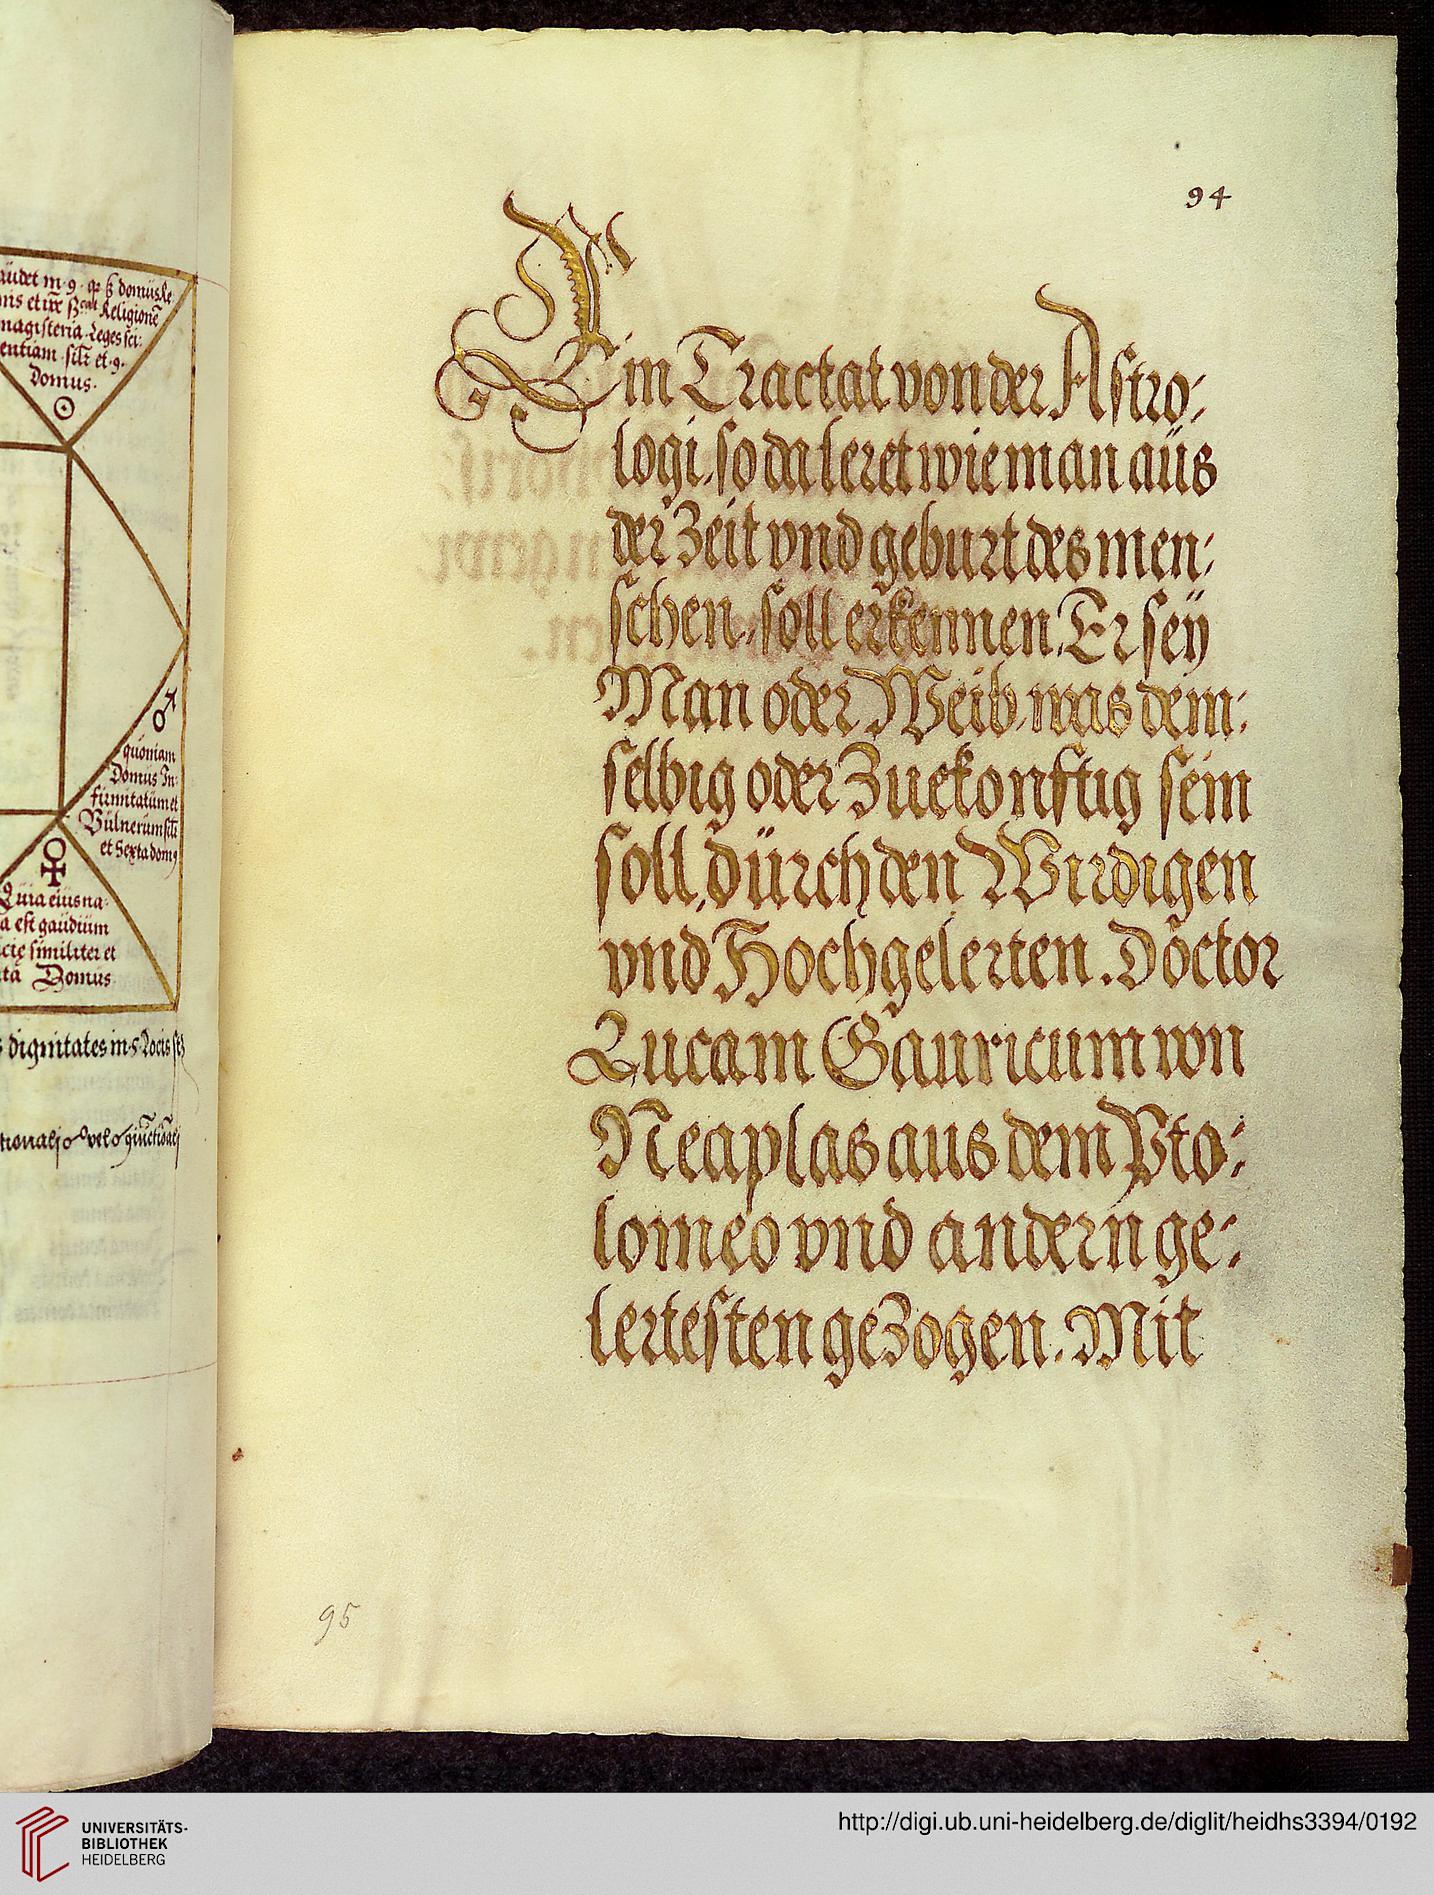 domus
entiam
Domus.
☉
♂
quoniam
Domus In:
firmitatum et
Vulnerum
et Sexta
♀
Quia eius na:
a est gaudium
similiter et
Domus
dignitates in
94
Ein Tractat von der Astro:
logi, so da leret wie man aüs
der Zeit vnd geburt des men:
schen, soll erkennen, Er seÿ
Man oder Weib, was dem:
selbig oder Zuekonftig sein
soll, dürch den Wirdigen
vnd Hochgelerten. Doctor
Lucam Gauricum von
Neaplas aus dem Pto:
lomeo vnd andern ge:
lertesten geZogen. Mit
95
UNIVERSITÄTS-
BIBLIOTHEK
HEIDELBERG
http://digi.ub.uni-heidelberg.de/diglit/heidhs3394/0192